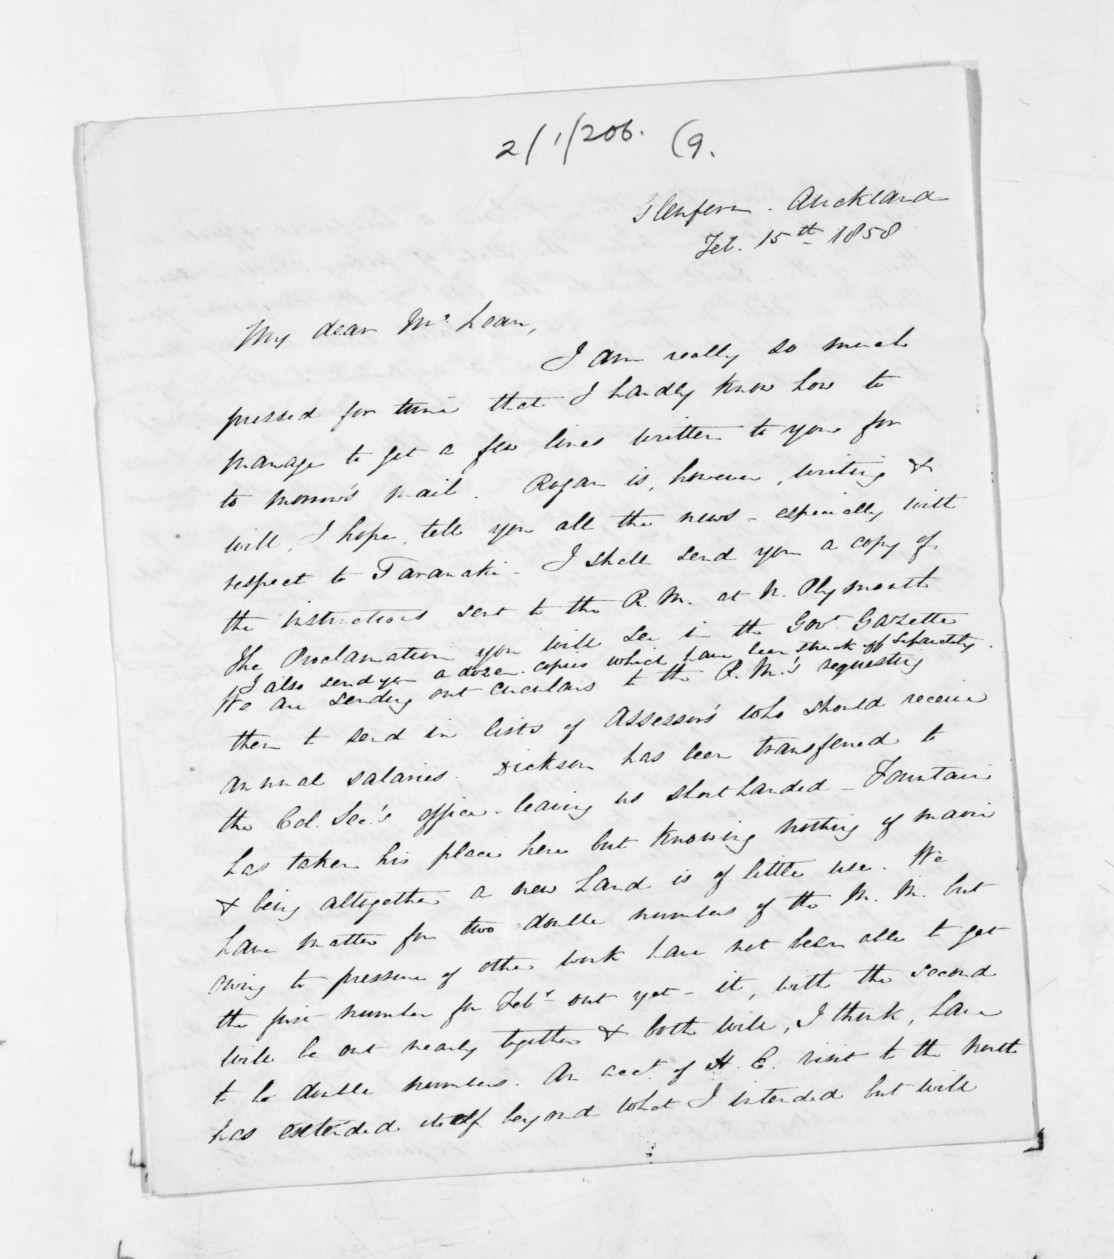 2/1/206. (9.
Glenfern. Auckland
Feb. 15th 1858
My dear Mc Lean,
I am really so much
pressed for time that I hardly know how to
manage to get a few lines written to you for
to morrow's mail. Rogan is, however, writing &
will, I hope, tell you all the news - especially with
respect to Taranaki - I shall send you a copy of
the instructions sent to the R.M. at N. Plymouth
The Proclamation you will see in the Govt. Gazette
I also send you a dozen copies which have been struck off separately.
We are sending out circulars to the R.M.'s requesting
them to send in lists of Assessors who should receive
annual salaries. Dickson has been transferred to
the Col. Sec.'s office - leaving us shorthanded - Fountain
has taken his place here but knowing nothing of maori
& being altogether a new hand is of little use. We
have matter for two double numbers of the M.M. but
owing to pressure of other work have not been able to get
the first number for Feby. out yet - it, with the second
will be out nearly together & both will, I think, have
to be double numbers. An acct. of H.E. visit to the North
has extended itself beyond what I intended but will